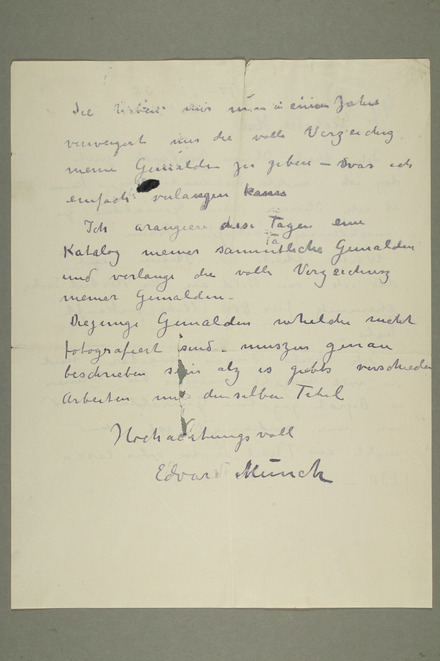 Sie haben mir nun in einem Jahre
verweigert mir die volle Verzeichnng
meine Gemälden zu geben – was ich
einfach verlangen kann
Ich arangiere diese Tagen eine
Katalog meiner sammtliche Gemälden
und verlange die volle Verzeichnung
meiner Gemalden –
Diejenige Gemalden whelche nicht
fotografiert sind – muszen genau
beschrieben sein als es giebts verschieden
Arbeiten mit denselben Titel
Hochachtungsvoll
Edvard Munch